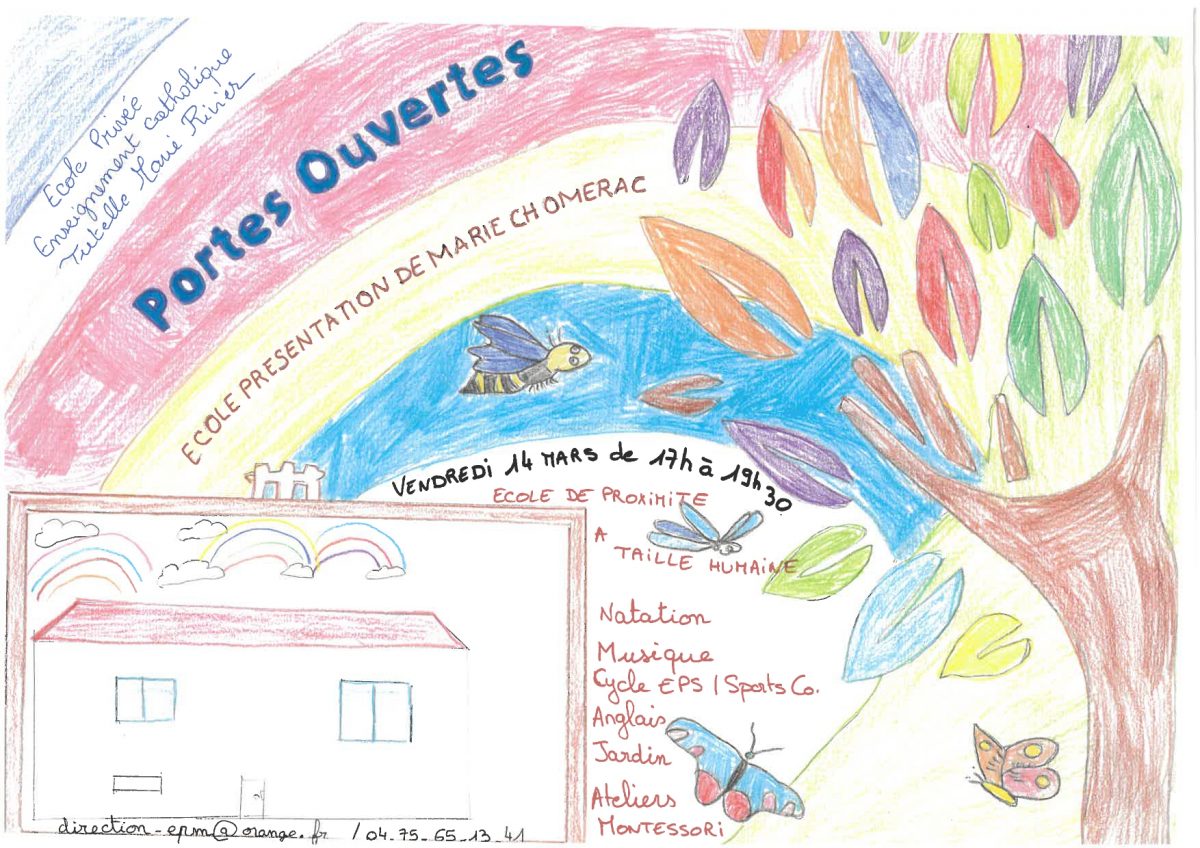 Ecole Privée
Enseignement Catholique
Tutelle Marie Rivier
Portes Ouvertes
ECOLE PRESENTATION DE MARIE CHOMERAC
VENDREDI 14 MARS de 17h à 19h30
ECOLE DE PROXIMITE
A TAILLE HUMAINE
Natation
Musique
Cycle EPS / Sports Co.
Anglais
Jardin
Ateliers
MONTESSORI
direction-epm@orange.fr / 04.75.65.13.41